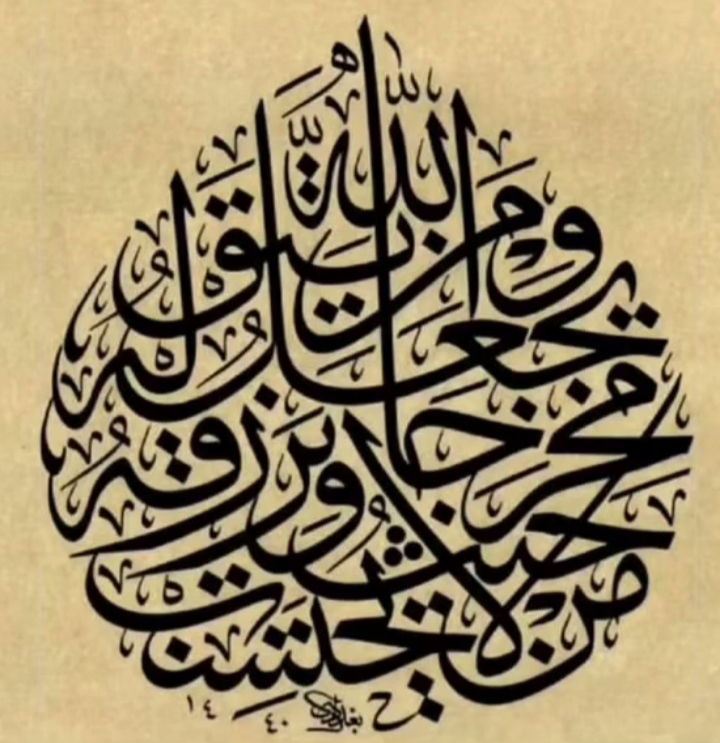 ومن يتق الله
يجعل له
مخرجا ويرزقه
من حيث
لا يحتسب
١٤٤٠